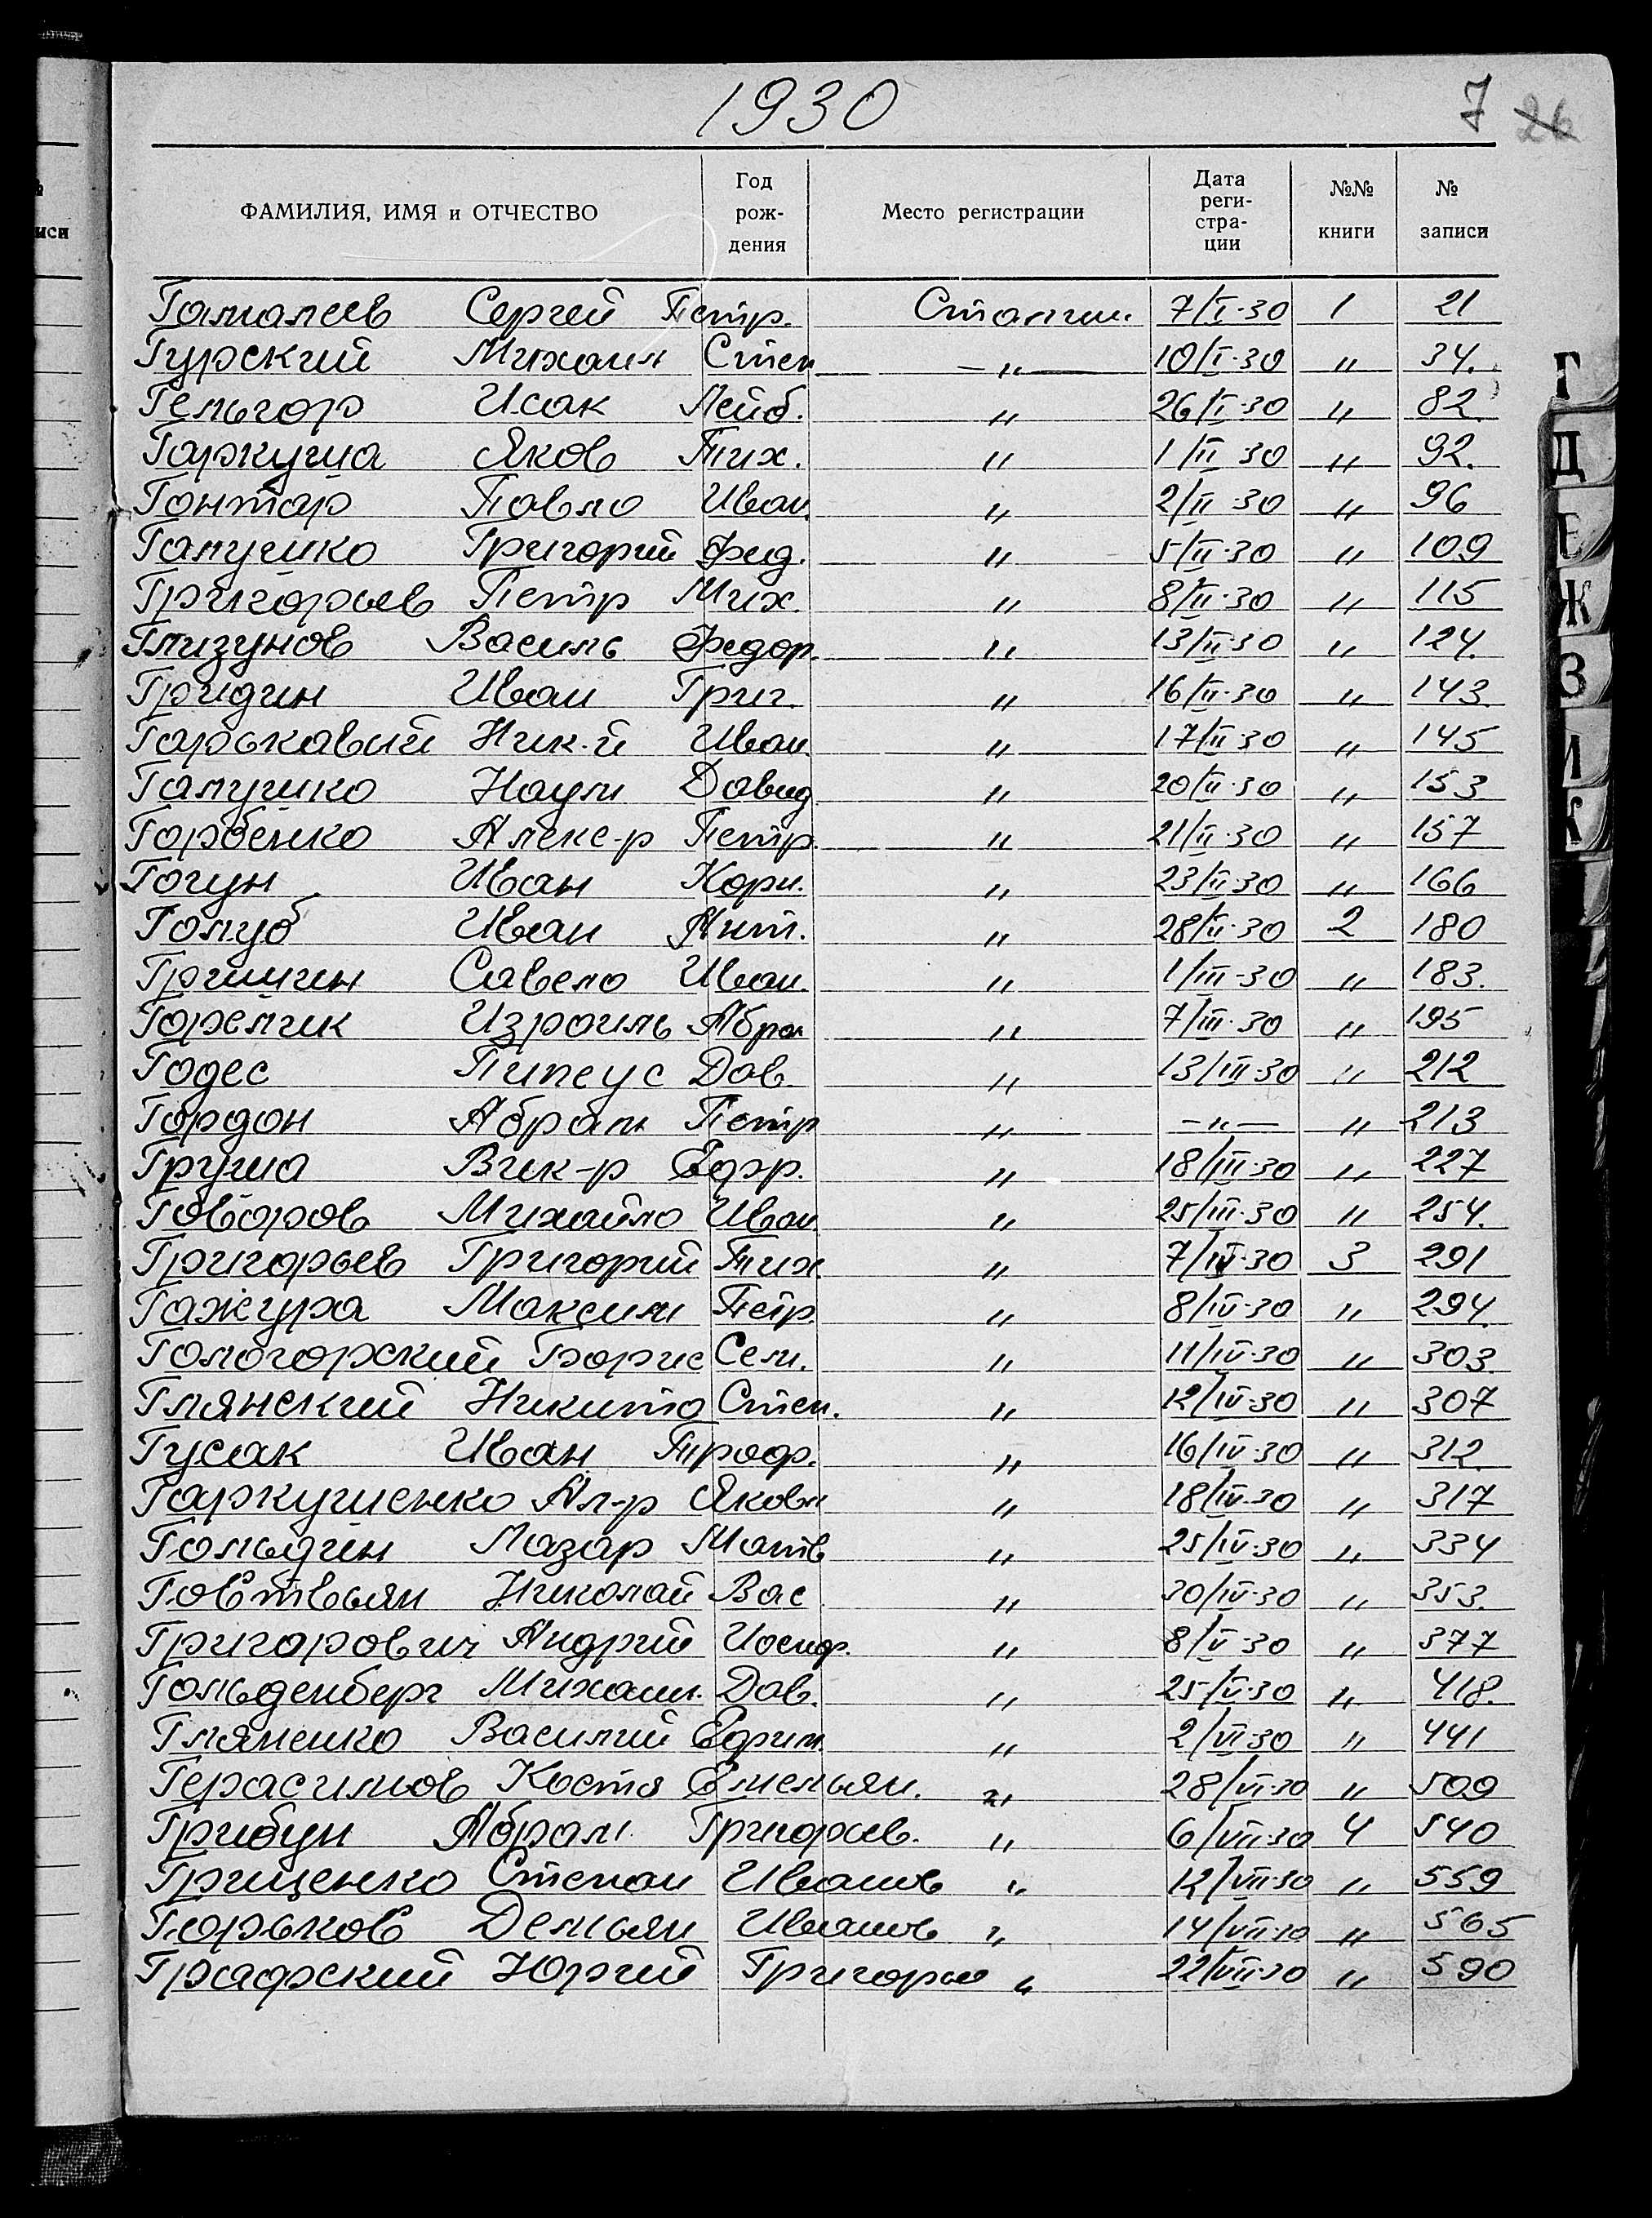 1930
7 26
ФАМИЛИЯ, ИМЯ и ОТЧЕСТВО Год рождения Место регистрации Дата регистрации №№ книги № записи
Гамалеев Сергей Петр. Сталин. 7/I-30 1 21
Гурский Михаил Степ. -"- 10/I-30 " 34.
Гельгор Исак Лейб. " 26/I-30 " 82.
Гаркуша Яков Тих. " 1/II 30 " 92.
Гонтар Павло Иван. " 2/II-30 " 96
Галушко Григорий Фед. " 5/II-30 " 109
Григорьев Петр Мих. " 8/II-30 " 115
Глизунов Василь Федор. " 13/II-30 " 124.
Гридин Иван Григ. " 16/II-30 " 143.
Гарькавый Ник-й Иван. " 17/II-30 " 145
Галушко Наум Давид " 20/II-30 " 153
Горбенко Алекс-р Петр. " 21/II-30 " 157
Гогун Иван Корн. " 23/II-30 " 166
Голуб Иван Ант. " 28/II-30 2 180
Гришин Савело Иван. " 1/III-30 " 183.
Горелик Израиль Абра " 7/III-30 " 195
Годес Дов. " 13/III-30 " 212
Гордон Абрам Петр " -"- " 213
Груша Вик-р Ефр. " 18/III-30 " 227
Говоров Михайло Иван. " 25/III-30 " 254.
Григорьев Григорий Тих. " 7/IV-30 3 291
Гажура Максим Петр. " 8/IV-30 " 294.
Гологорский Борис Сем. " 11/IV-30 " 303
Глянский Никита Степ. " 12/IV-30 " 307
Гусак Иван Троф. " 16/IV-30 " 312.
Гаркушенко Ал-р Яковл " 18/IV-30 " 317
Гольдин Лазар Матв " 25/IV-30 " 334
Говтвьян Николай Вас " 30/IV-30 " 353.
Григорович Андрий Иосиф. " 8/V-30 " 377
Гольденберг Михаил. Дав. " 25/V-30 " 418.
Гляненко Василий Ефим. " 2/VI-30 " 441
Герасимов Костя Емельян. " 28/VI-30 " 509
Грибун Абрам Григорьев. " 6/VII-30 4 540
Грищенко Степан Иванов " 12/VII-30 " 559
Горьков Демьян Иванов " 14/VII-30 " 565
Графский Юргий Григорьев " 22/VII-30 " 590
Г
Д
Е
Ж
З
И
К